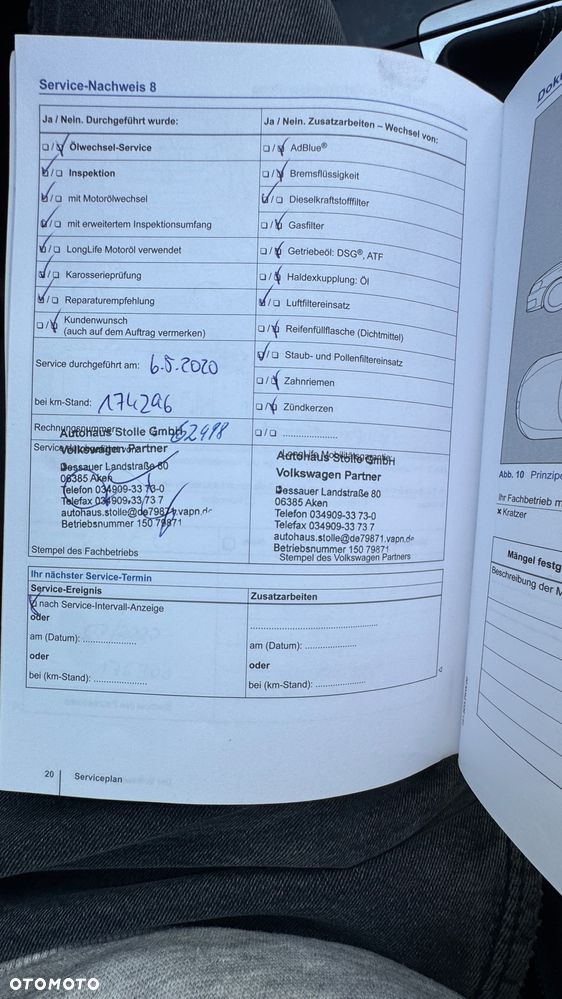 Service-Nachweis 8
Ja / Nein. Durchgeführt wurde:
Ja / Nein. Zusatzarbeiten – Wechsel von:
☐/☑ Ölwechsel-Service
☐/☑ AdBlue®
☑/☐ Inspektion
☐/☑ Bremsflüssigkeit
☑/☐ mit Motorölwechsel
☑/☐ Dieselkraftstofffilter
☑/☐ mit erweitertem Inspektionsumfang
☐/☑ Gasfilter
☑/☐ LongLife Motoröl verwendet
☐/☑ Getriebeöl: DSG®, ATF
☑/☐ Karosserieprüfung
☐/☑ Haldexkupplung: Öl
☑/☐ Reparaturempfehlung
☑/☐ Luftfiltereinsatz
☐/☑ Kundenwunsch
(auch auf dem Auftrag vermerken)
☐/☑ Reifenfüllflasche (Dichtmittel)
☑/☐ Staub- und Pollenfiltereinsatz
Service durchgeführt am: 6.5.2020
☐/☑ Zahnriemen
bei km-Stand: 174296
☐/☑ Zündkerzen
☐/☐ ....................
Autohaus Stolle GmbH
Volkswagen Partner
Dessauer Landstraße 80
06385 Aken
Telefon 034909-33 73-0
Telefax 034909-33 73 7
autohaus.stolle@de79871.vapn.de
Betriebsnummer 150 79871
Stempel des Fachbetriebs
Autohaus Stolle GmbH
Volkswagen Partner
Dessauer Landstraße 80
06385 Aken
Telefon 034909-33 73-0
Telefax 034909-33 73 7
autohaus.stolle@de79871.vapn.de
Betriebsnummer 150 79871
Stempel des Volkswagen Partners
Ihr nächster Service-Termin
Service-Ereignis
Zusatzarbeiten
☑ nach Service-Intervall-Anzeige
oder
am (Datum): ....................
oder
bei (km-Stand): ....................
....................
am (Datum): ....................
oder
bei (km-Stand): ....................
20
Serviceplan
Abb. 10 Prinzipe
Ihr Fachbetrieb m
x Kratzer
Mängel festg
Beschreibung der M
OTOMOTO